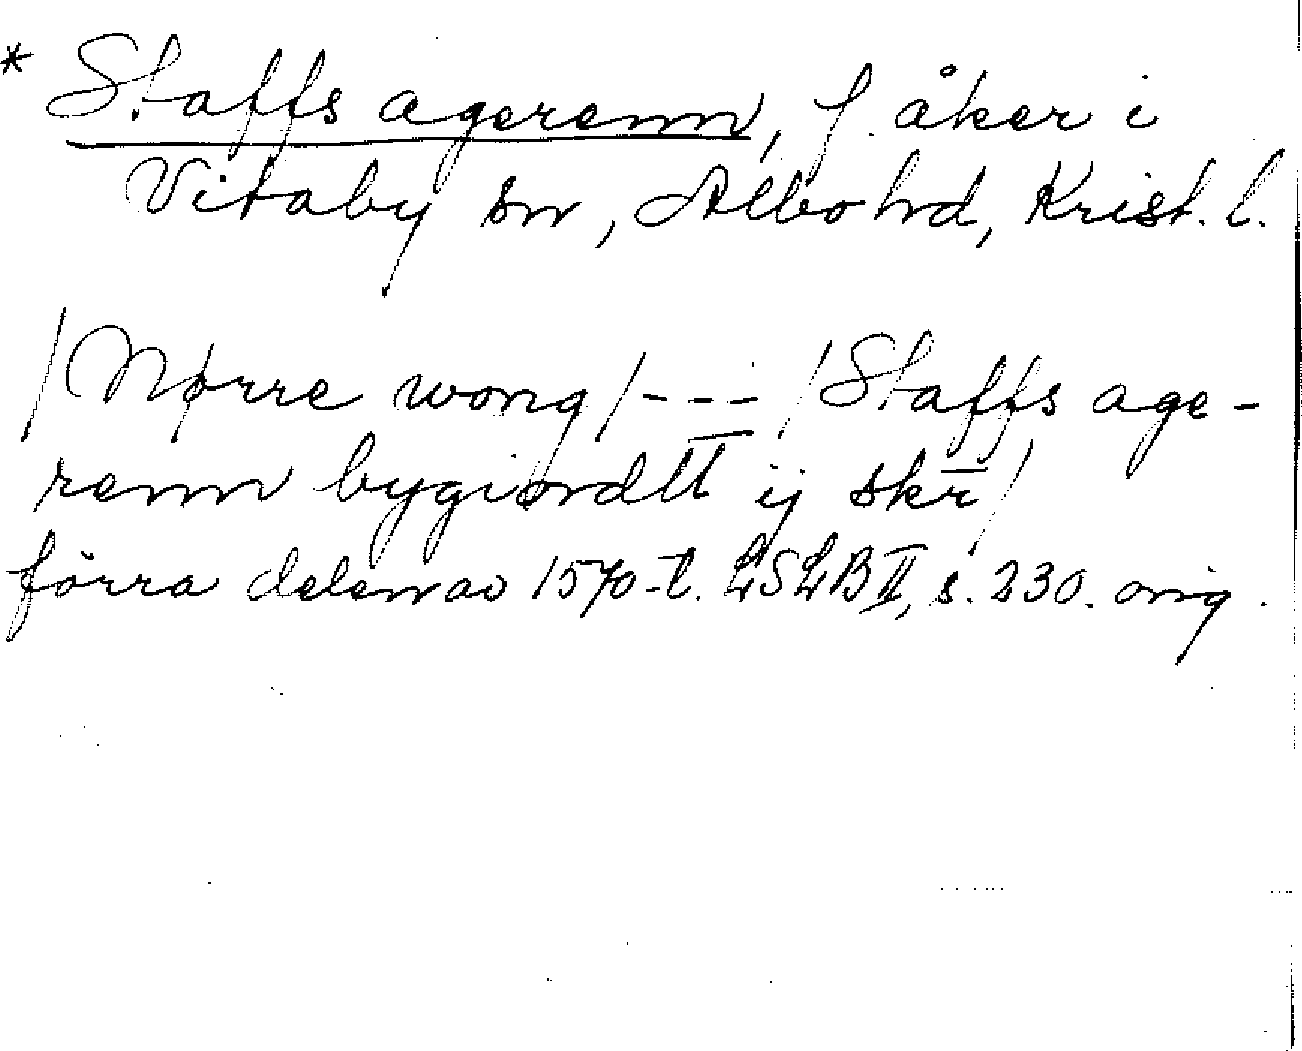 * Staffs agerenn, f. åker i
Vitaby sn, Albo hd, Krist. l.
/Nørre wong/ - - - /Staffs age-
renn bygiordtt ij skr̄/
förra delen av 1570-t. LSLB II, s. 230. orig.